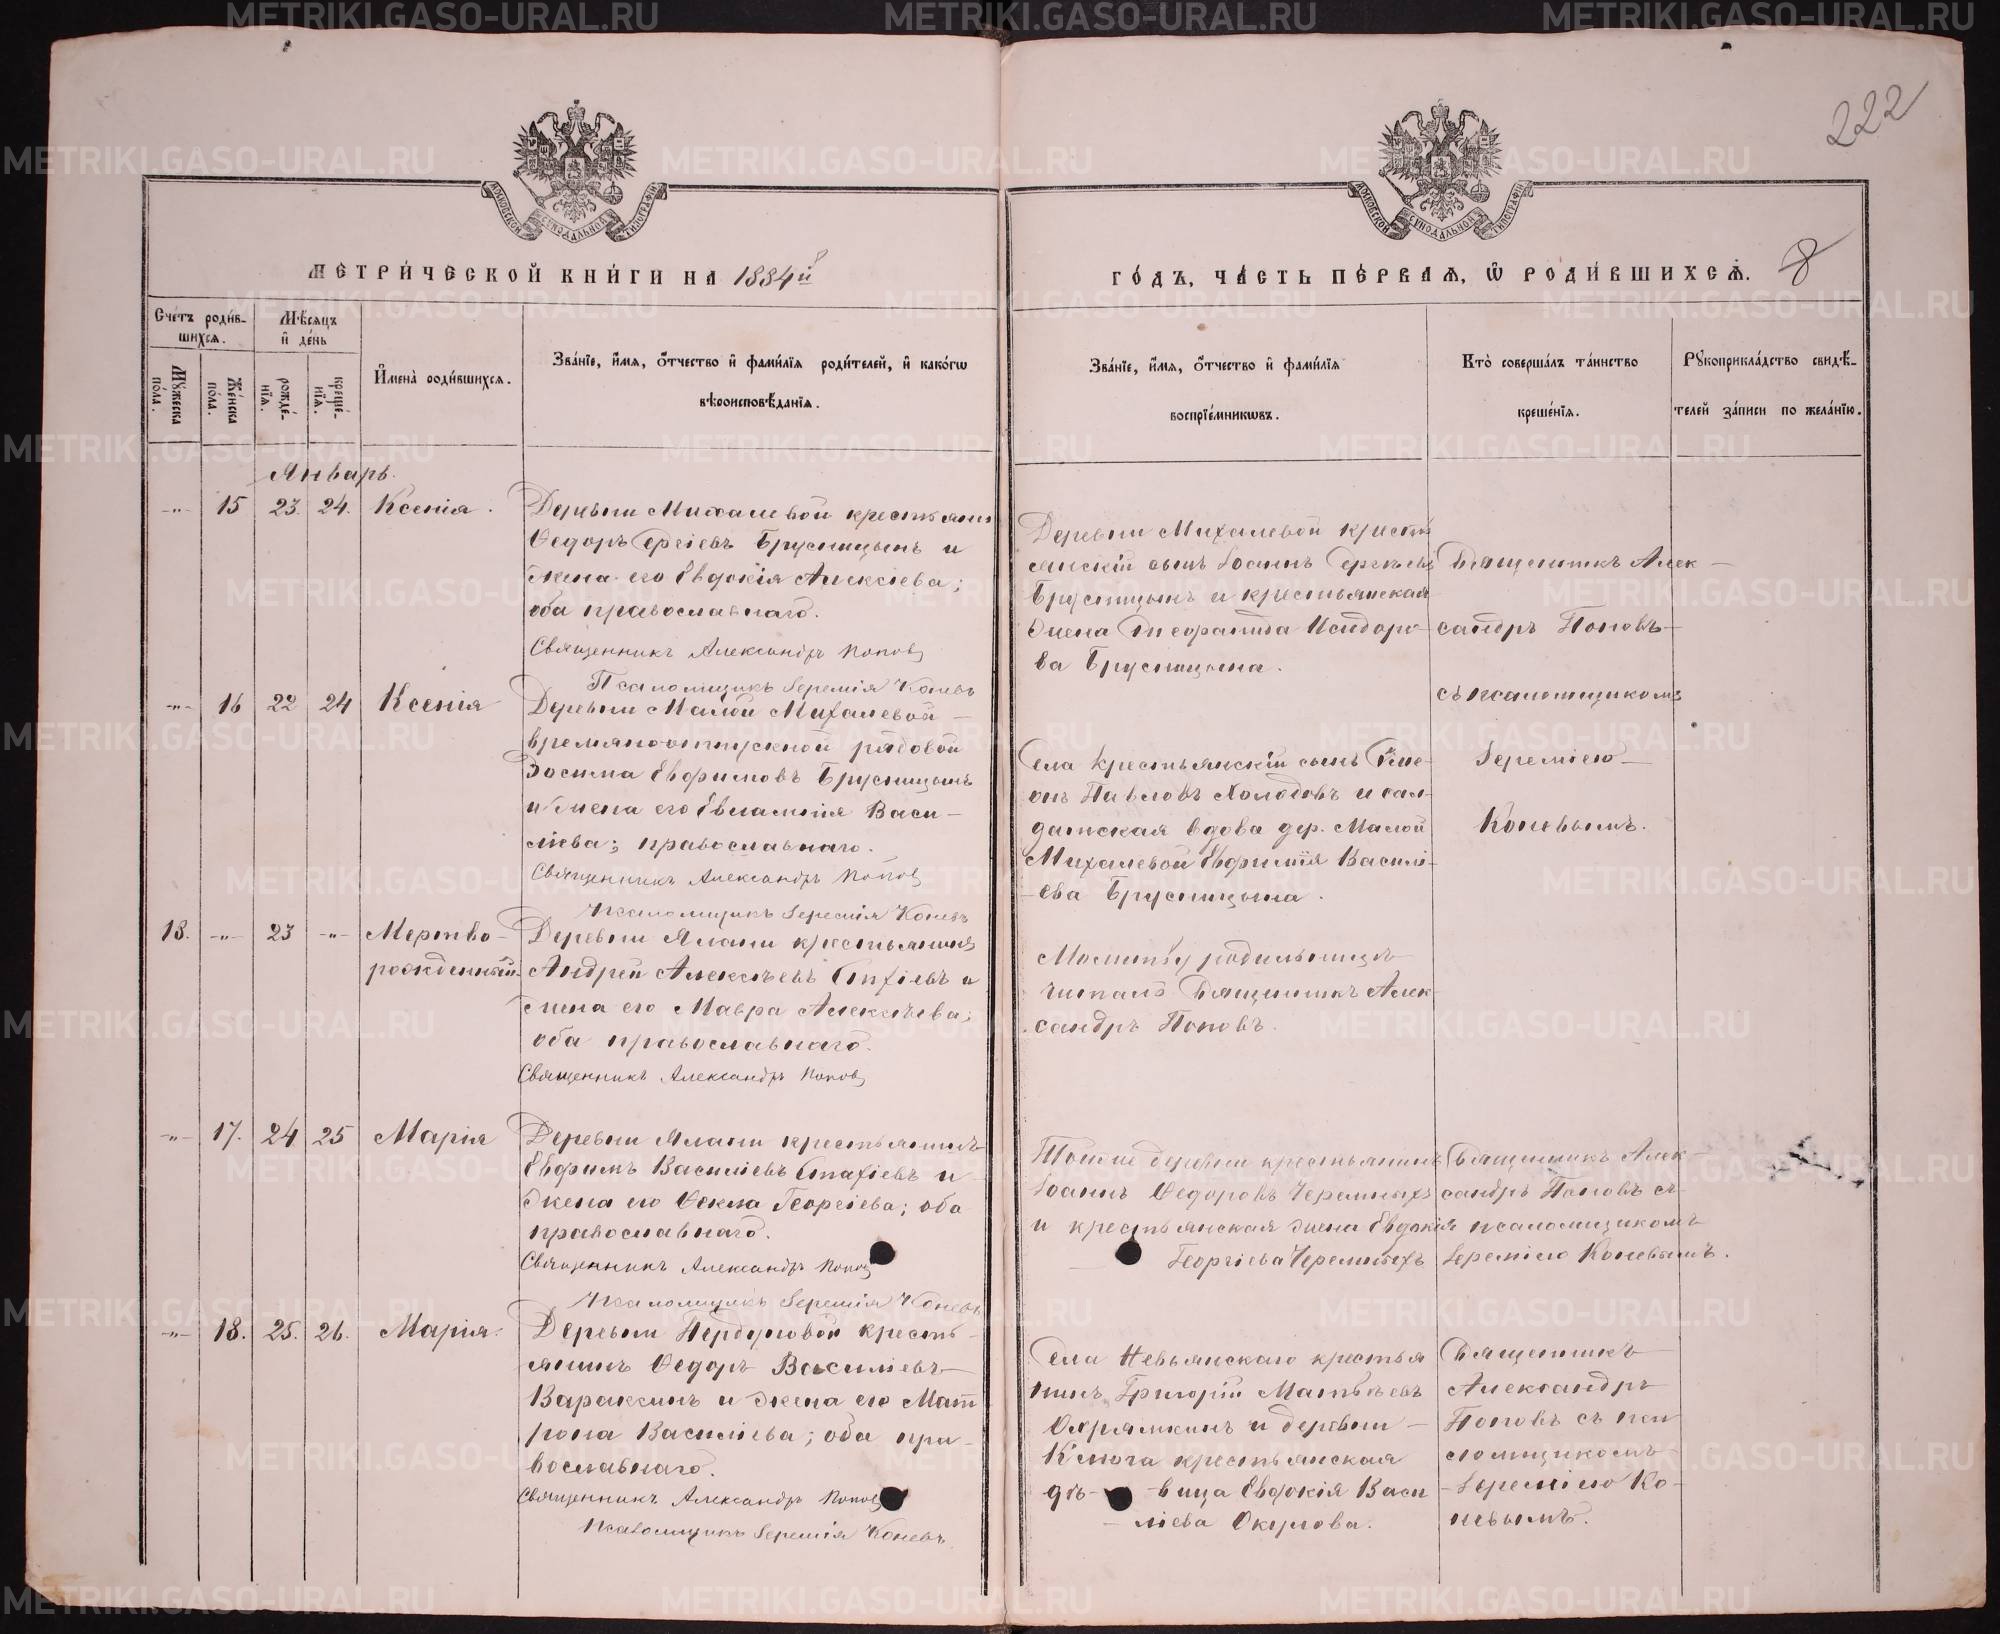 222
МОСКОВСКОЙ СѴНОДАЛЬНОЙ ТИПОГРАФІИ
МОСКОВСКОЙ СѴНОДАЛЬНОЙ ТИПОГРАФІИ
МЕТРИ́ЧЕСКОЙ КНИ́ГИ НА 1884й
ГО́ДЪ, ЧА́СТЬ ПЕ́РВАЯ, Ѡ РОДИ́ВШИХСЯ. 8
Сче́тъ роди́в-
шихся.
Мѣ́сяцъ
и́ де́нь
Му́жеска по́ла.
Же́нска по́ла.
рожде́-
нїя.
креще́-
нїя.
И҆мена̀ роди́вшихся.
Зва́нїе, и҆́мя, ѻ҆́тчество и҆ фами́лїя роди́телей, и҆ како́гѡ
вѣроисповѣ́данїя.
Зва́нїе, и҆́мя, ѻ҆́тчество и҆ фами́лїя
воспрїе́мникѡвъ.
Кто̀ соверша́лъ та́инство
креще́нїя.
Рꙋкоприкла́дство свидѣ́-
телей за́писи по жела́нїю.
Январь.
-"- 15 23. 24. Ксенія.
Деревни Михалевой крестьянин
Ѳедоръ Сергіевъ Брусницынъ и
жена его Евдокія Алексіева;
оба православнаго.
Священникъ Александръ Поповъ
Псаломщикъ Іеремія Коневъ
Деревни Михалевой кресть
янскій сынъ Іоаннъ Сергѣевъ
Брусницынъ и крестьянская
жена Ѳеофанида Исидоро-
ва Брусницына.
Священникъ Алек-
сандръ Поповъ
съ псаломщикомъ
Іереміею
Коневымъ.
-"- 16 22 24 Ксенія
Деревни Малой Михалевой
времяноотпускной рядовой
Зосима Евфимовъ Брусницынъ
и жена его Евлампія Васи-
ліева; православнаго.
Священникъ Александръ Поповъ
Псаломщикъ Іеремія Коневъ
Села крестьянскій сынъ Симе-
онъ Павловъ Холодовъ и сол-
датская вдова дер. Малой
Михалевой Евфимія Василі-
ева Брусницына.
13. -"- 23 -"- Мертво-
рожденный.
Деревни Ялани крестьянинъ
Андрей Алексѣевъ Стахіевъ и
жена его Мавра Алексѣева;
оба православнаго.
Священникъ Александръ Поповъ
Молитву родильницѣ
читалъ Священникъ Алек-
сандръ Поповъ.
-"- 17. 24 25 Марія
Деревни Ялани крестьянинъ
Евфимъ Василіевъ Стахіевъ и
жена его Ѳекла Георгіева; оба
православнаго.
Священникъ Александръ Поповъ
Псаломщикъ Іеремія Коневъ
Тойже деревни крестьянинъ
Іоаннъ Ѳедоровъ Черемныхъ
и крестьянская жена Евдокія
Георгіева Черемныхъ
Священникъ Алек-
сандръ Поповъ съ
псаломщикомъ
Іереміею Коневымъ.
-"- 18. 25. 26. Марія.
Деревни кресть-
янинъ Ѳедоръ Василіевъ
Вараксинъ и жена его Мат
рона Василіева; оба пра-
вославнаго.
Священникъ Александръ Поповъ
Псаломщикъ Іеремія Коневъ
Села Невьянскаго крестья
нинъ Григорій Матвѣевъ
Охрямкинъ и деревни
Ключа крестьянская
дѣвица Евдокія Васи
ліева Окулова.
Священникъ
Александръ
Поповъ съ пса
ломщикомъ
Іереміею Ко-
невымъ.
METRIKI.GASO-URAL.RU